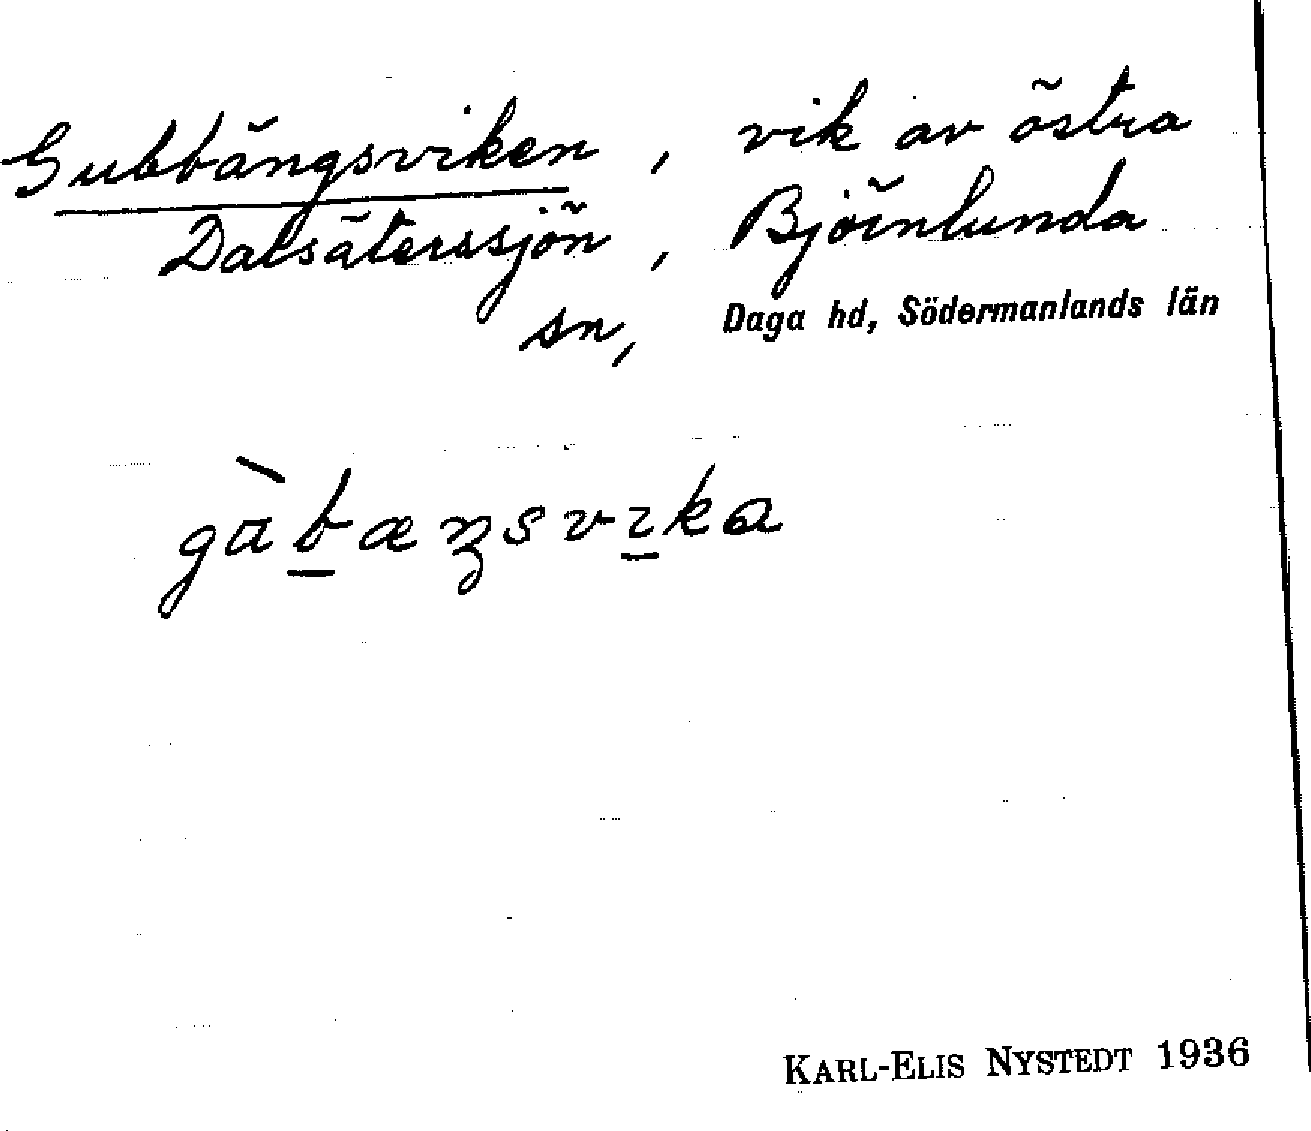 Gubbängsviken, vik av östra
Dalsäterssjön, Björnlunda
sn, Daga hd, Södermanlands län
gàb̲æŋsvı̲ka
KARL-ELIS NYSTEDT 1936